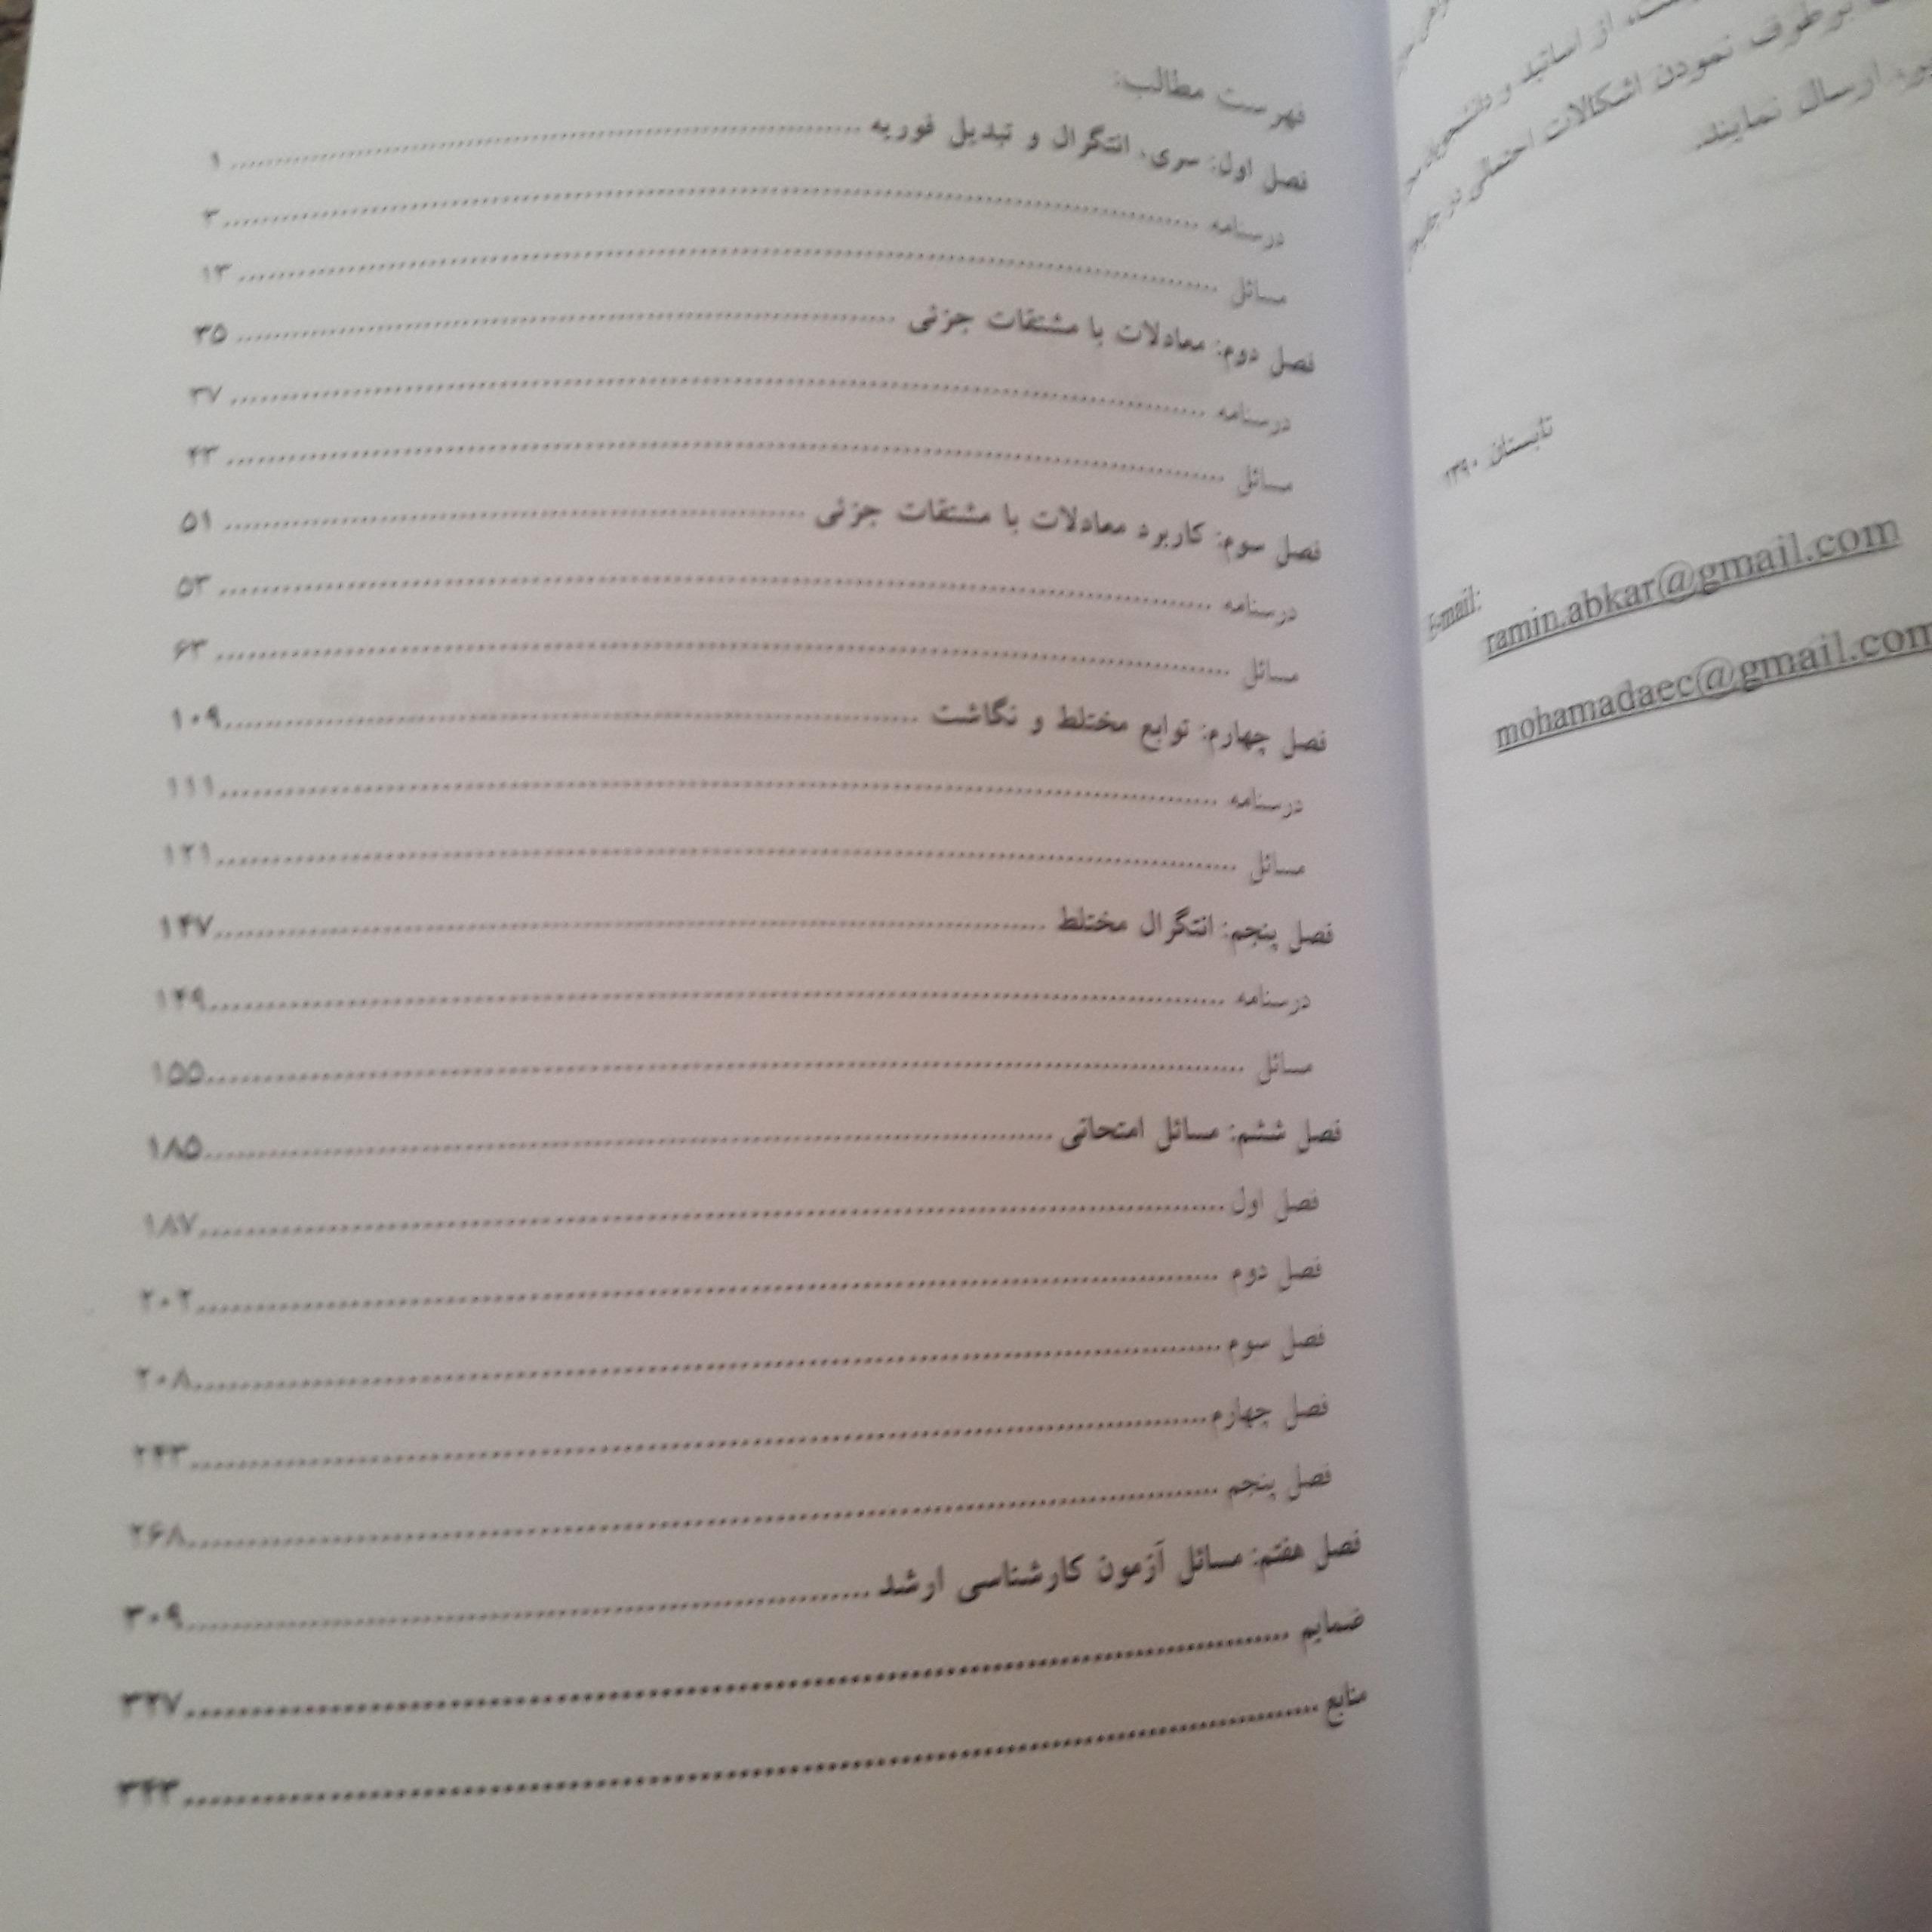 فهرست مطالب:
فصل اول: سری، انتگرال و تبدیل فوریه ۱
درسنامه ۳
مسائل ۱۳
فصل دوم: معادلات با مشتقات جزئی ۳۵
درسنامه ۳۷
مسائل ۴۳
فصل سوم: کاربرد معادلات با مشتقات جزئی ۵۱
درسنامه ۵۳
مسائل ۶۳
فصل چهارم: توابع مختلط و نگاشت ۱۰۹
درسنامه ۱۱۱
مسائل ۱۲۱
فصل پنجم: انتگرال مختلط ۱۴۷
درسنامه ۱۴۹
مسائل ۱۵۵
فصل ششم: مسائل امتحانی ۱۸۵
فصل اول ۱۸۷
فصل دوم ۲۰۲
فصل سوم ۲۰۸
فصل چهارم ۲۴۳
فصل پنجم ۲۶۸
فصل هفتم: مسائل آزمون کارشناسی ارشد ۳۰۹
ضمایم ۳۲۷
منابع ۳۴۳
از اساتید و
برطرف نمودن اشکالات احتمالی در
ارسال نمایند.
تابستان ۱۳۹۰
E-mail:
ramin.abkar@gmail.com
mohamadaec@gmail.com